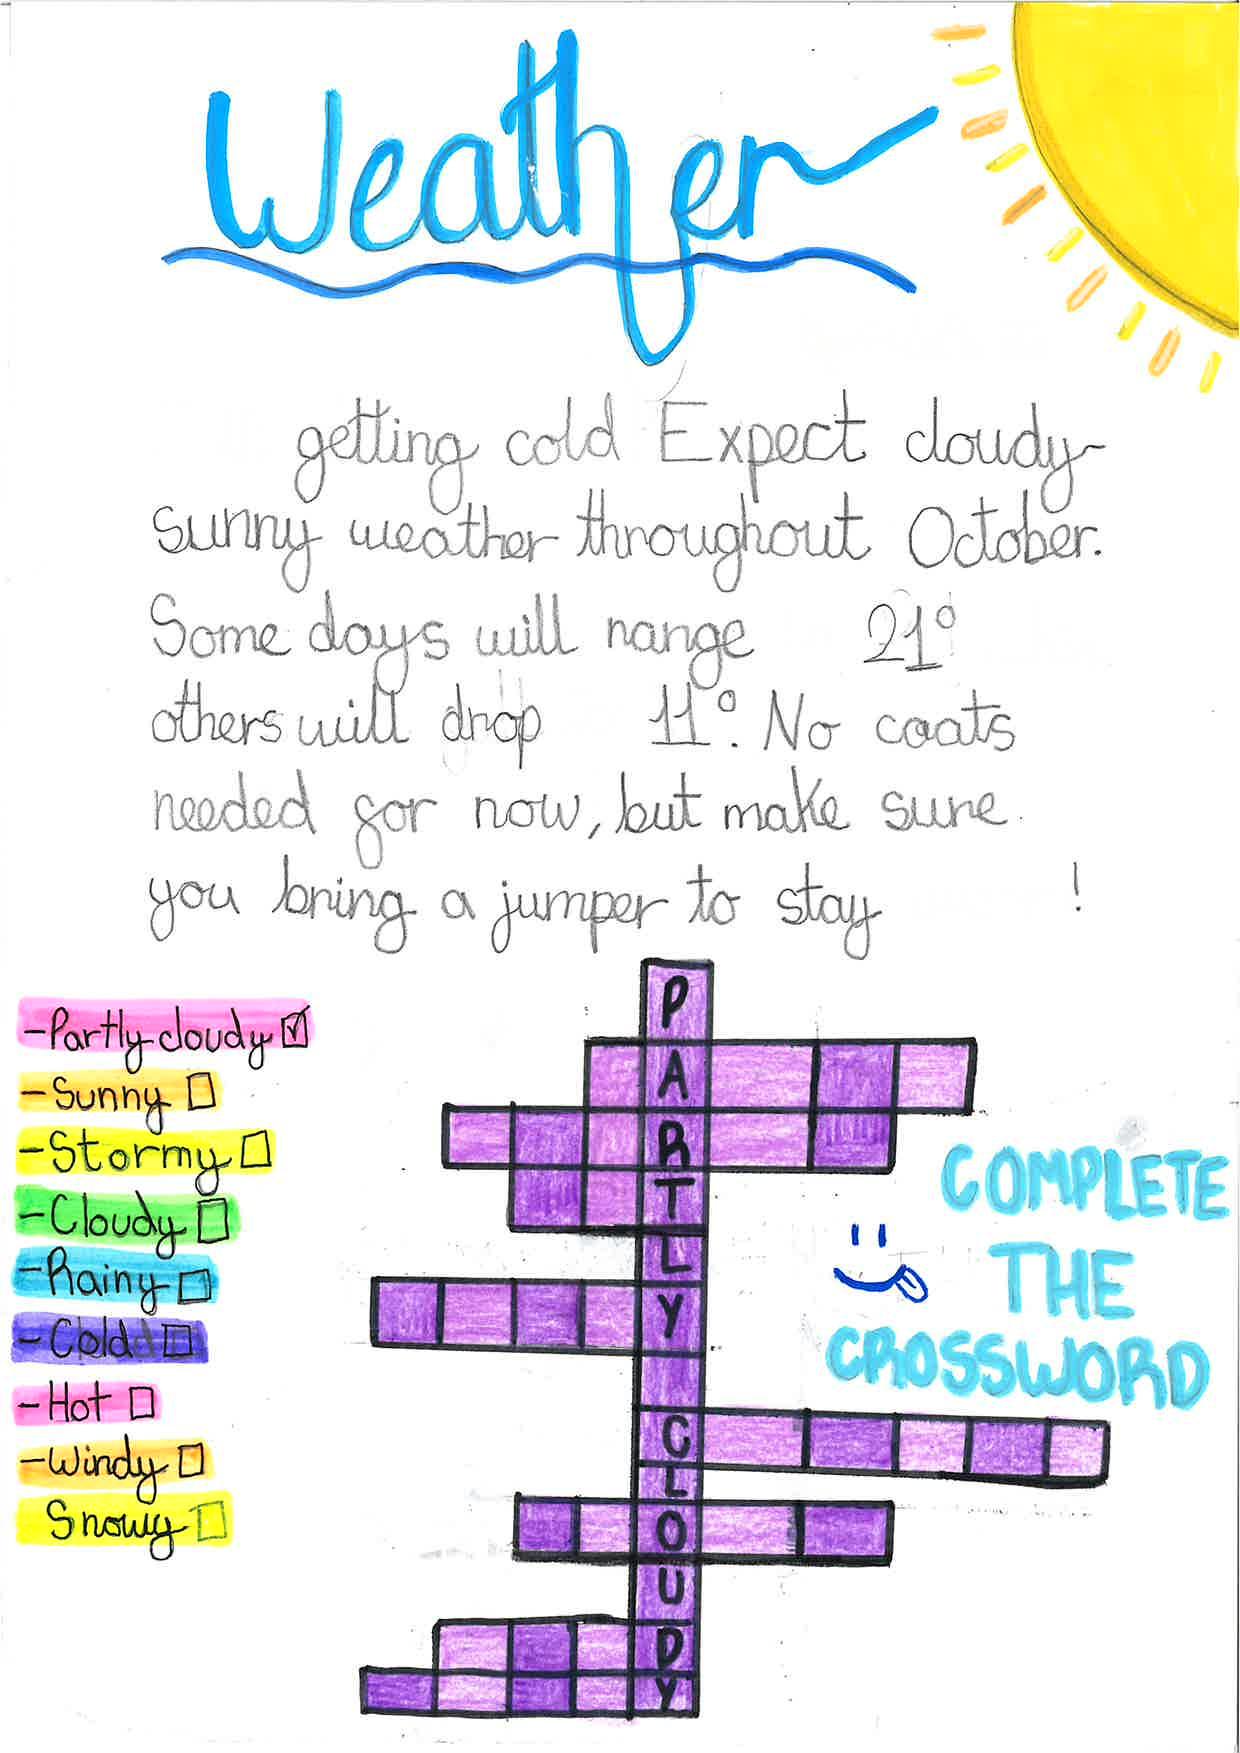 Weather
getting cold Expect cloudy
sunny weather throughout October.
Some days will range 21°
others will drop 11°. No coats
needed for now, but make sure
you bring a jumper to stay !
-Partly cloudy
-Sunny
-Stormy
-Cloudy
-Rainy
-Cold
-Hot
-Windy
Snowy
P
A
R
T
L
Y
C
L
O
U
D
Y
COMPLETE
THE
CROSSWORD